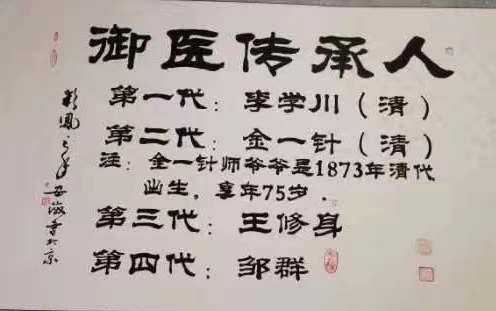 御医传承人
第一代：李学川（清）
第二代：金一针（清）
注：金一针师爷爷是1873年清代
出生，享年75岁．
第三代：王修身
第四代：邹群